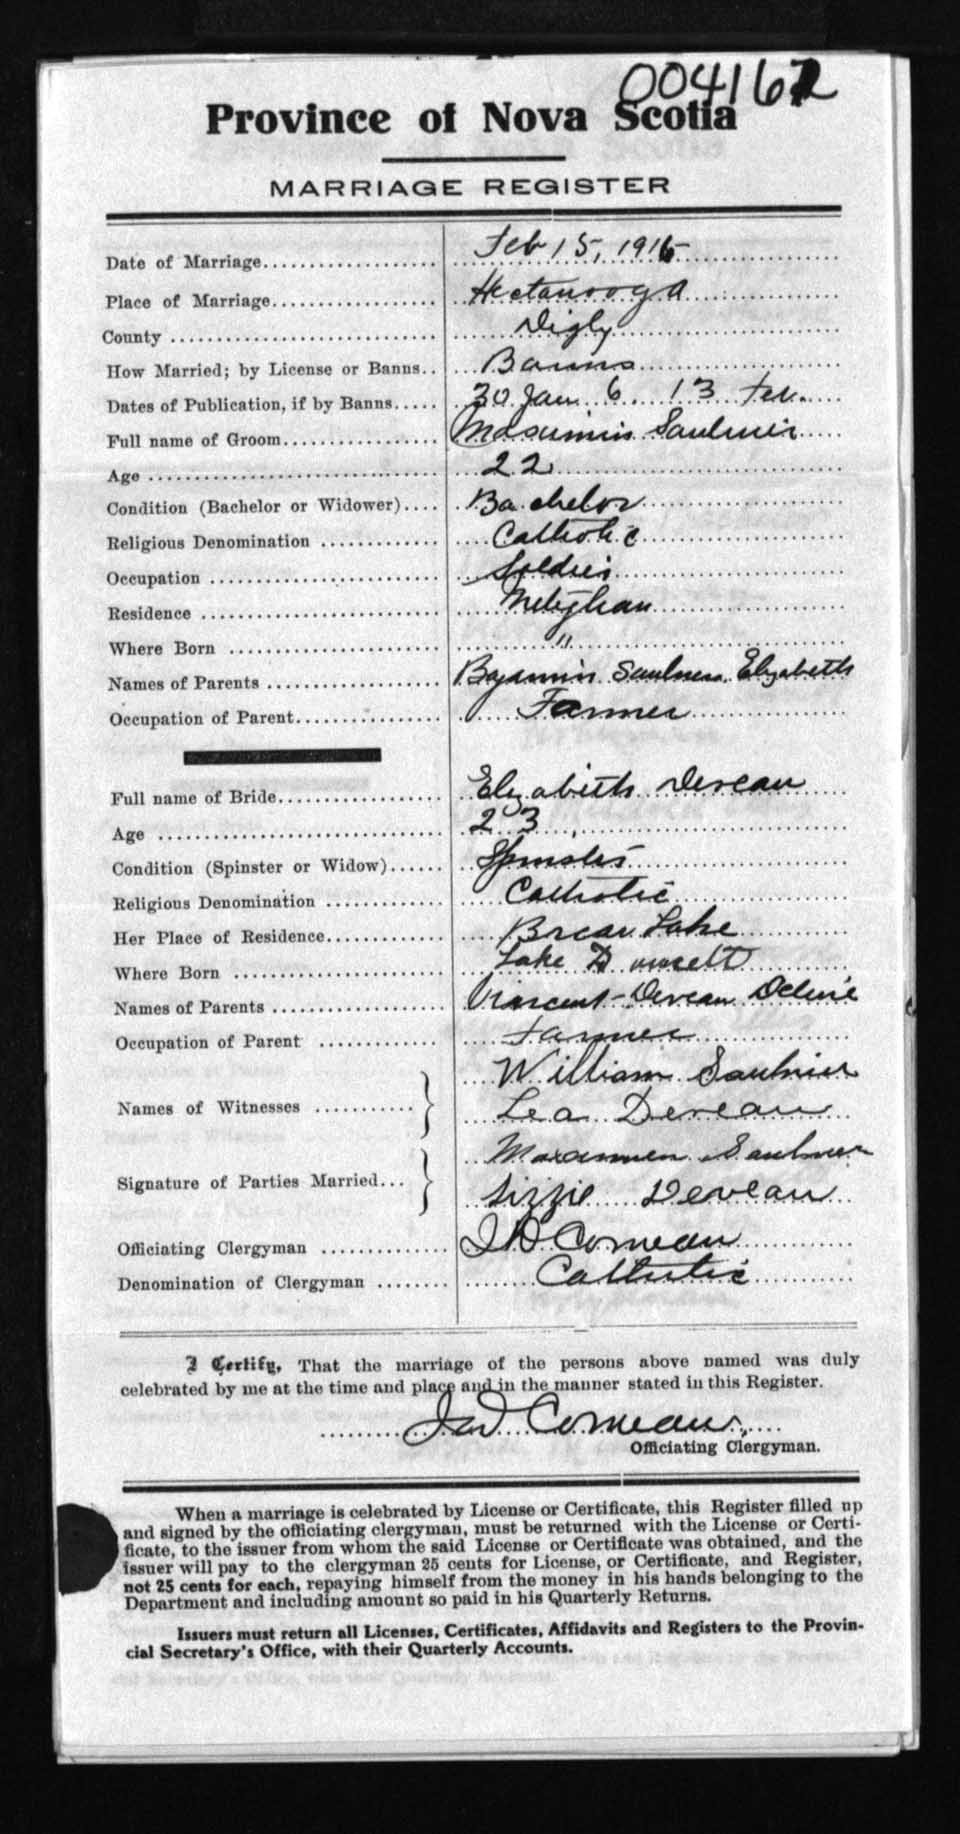 004162
Province of Nova Scotia
MARRIAGE REGISTER
Date of Marriage.................... Feb 15, 1916
Place of Marriage................... Hectanooga
County .............................. Digby
How Married; by License or Banns.. Banns
Dates of Publication, if by Banns..... 30 Jan. 6. 13 Fev.
Full name of Groom.................. Saulnier
Age ................................. 22
Condition (Bachelor or Widower).... Bachelor
Religious Denomination ............. Catholic
Occupation .......................... Soldier
Residence ........................... Meteghan
Where Born ......................... "
Names of Parents .................... Saulnier Elizabeth
Occupation of Parent................. Farmer
Full name of Bride................... Elizabeth Deveau
Age ................................. 23
Condition (Spinster or Widow)...... Spinster
Religious Denomination ............. Catholic
Her Place of Residence.............. Lake
Where Born ......................... Lake
Names of Parents .................... Vincent Deveau
Occupation of Parent ............. Farmer
Names of Witnesses ........... William Saulnier
Lea Deveau
Signature of Parties Married... Saulnier
Lizzie Deveau
Officiating Clergyman .............. Comeau
Denomination of Clergyman ........ Catholic
I Certify, That the marriage of the persons above named was duly
celebrated by me at the time and place and in the manner stated in this Register.
Comeau
Officiating Clergyman.
When a marriage is celebrated by License or Certificate, this Register filled up
and signed by the officiating clergyman, must be returned with the License or Certi-
ficate, to the issuer from whom the said License or Certificate was obtained, and the
issuer will pay to the clergyman 25 cents for License, or Certificate, and Register,
not 25 cents for each, repaying himself from the money in his hands belonging to the
Department and including amount so paid in his Quarterly Returns.
Issuers must return all Licenses, Certificates, Affidavits and Registers to the Provin-
cial Secretary's Office, with their Quarterly Accounts.